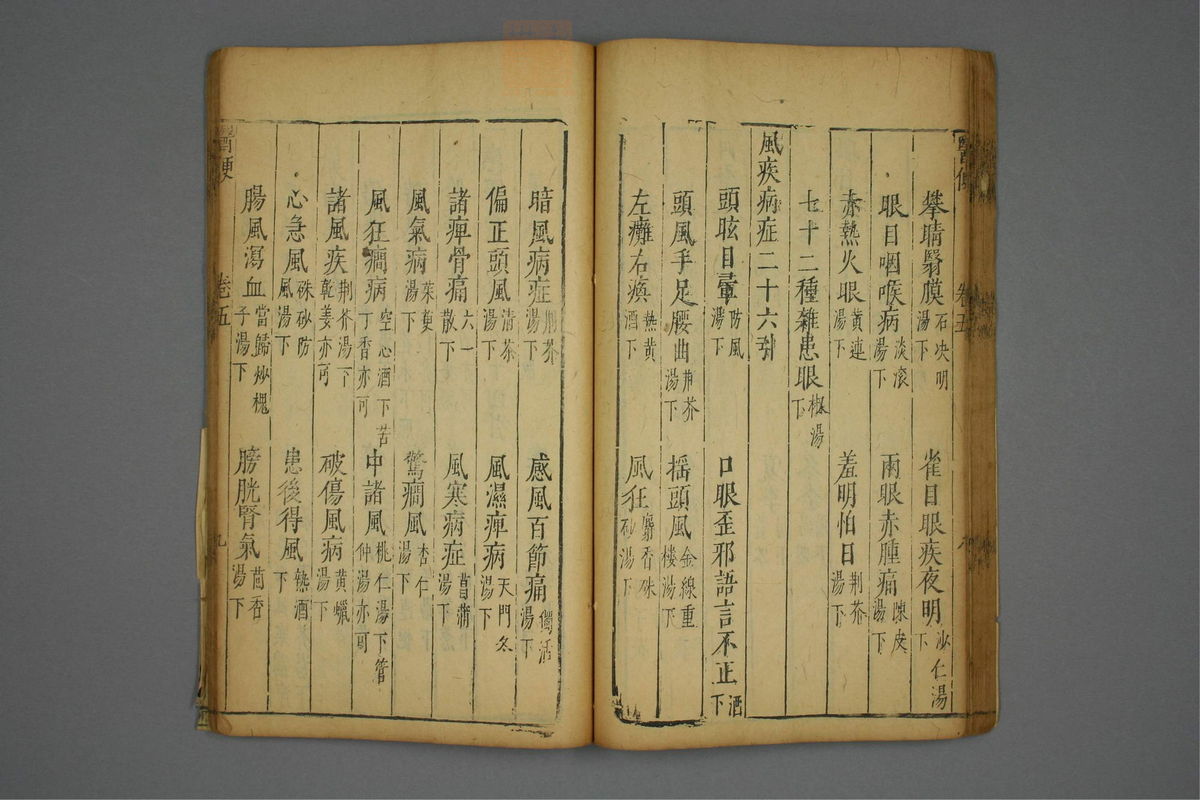 攀睛翳膜石决明湯下 雀目眼疾夜明沙仁湯下
眼目咽喉病淡滚湯下 兩眼赤腫痛陳皮湯下
赤熱火眼黄連湯下 羞明怕日荆芥湯下
七十二種雜患眼椒湯下
風疾病症二十六 
頭眩目暈防風湯下 口眼歪邪語言不正酒下
頭風手足腰曲荆芥湯下 摇頭風金線重楼湯下
左癱右瘓熱黄酒下 風狂麝香硃砂湯下
卷五
八
暗風病症荆芥湯下 感風百節痛獨活湯下
偏正頭風清茶湯下 風濕痺病天門冬湯下
諸痺骨痛六一散下 風寒病症菖蒲湯下
風氣病茱萸湯下 驚癇風杏仁湯下
風狂癇病空心酒下苦丁香亦可 中諸風桃仁湯下管仲湯亦可
諸風疾荆芥湯下乾姜亦可 破傷風病黄蠟湯下
心急風硃砂防風湯下 患後得風熱酒下
腸風瀉血當歸炒槐子湯下 膀胱腎氣茴香湯下
醫便
卷五
九